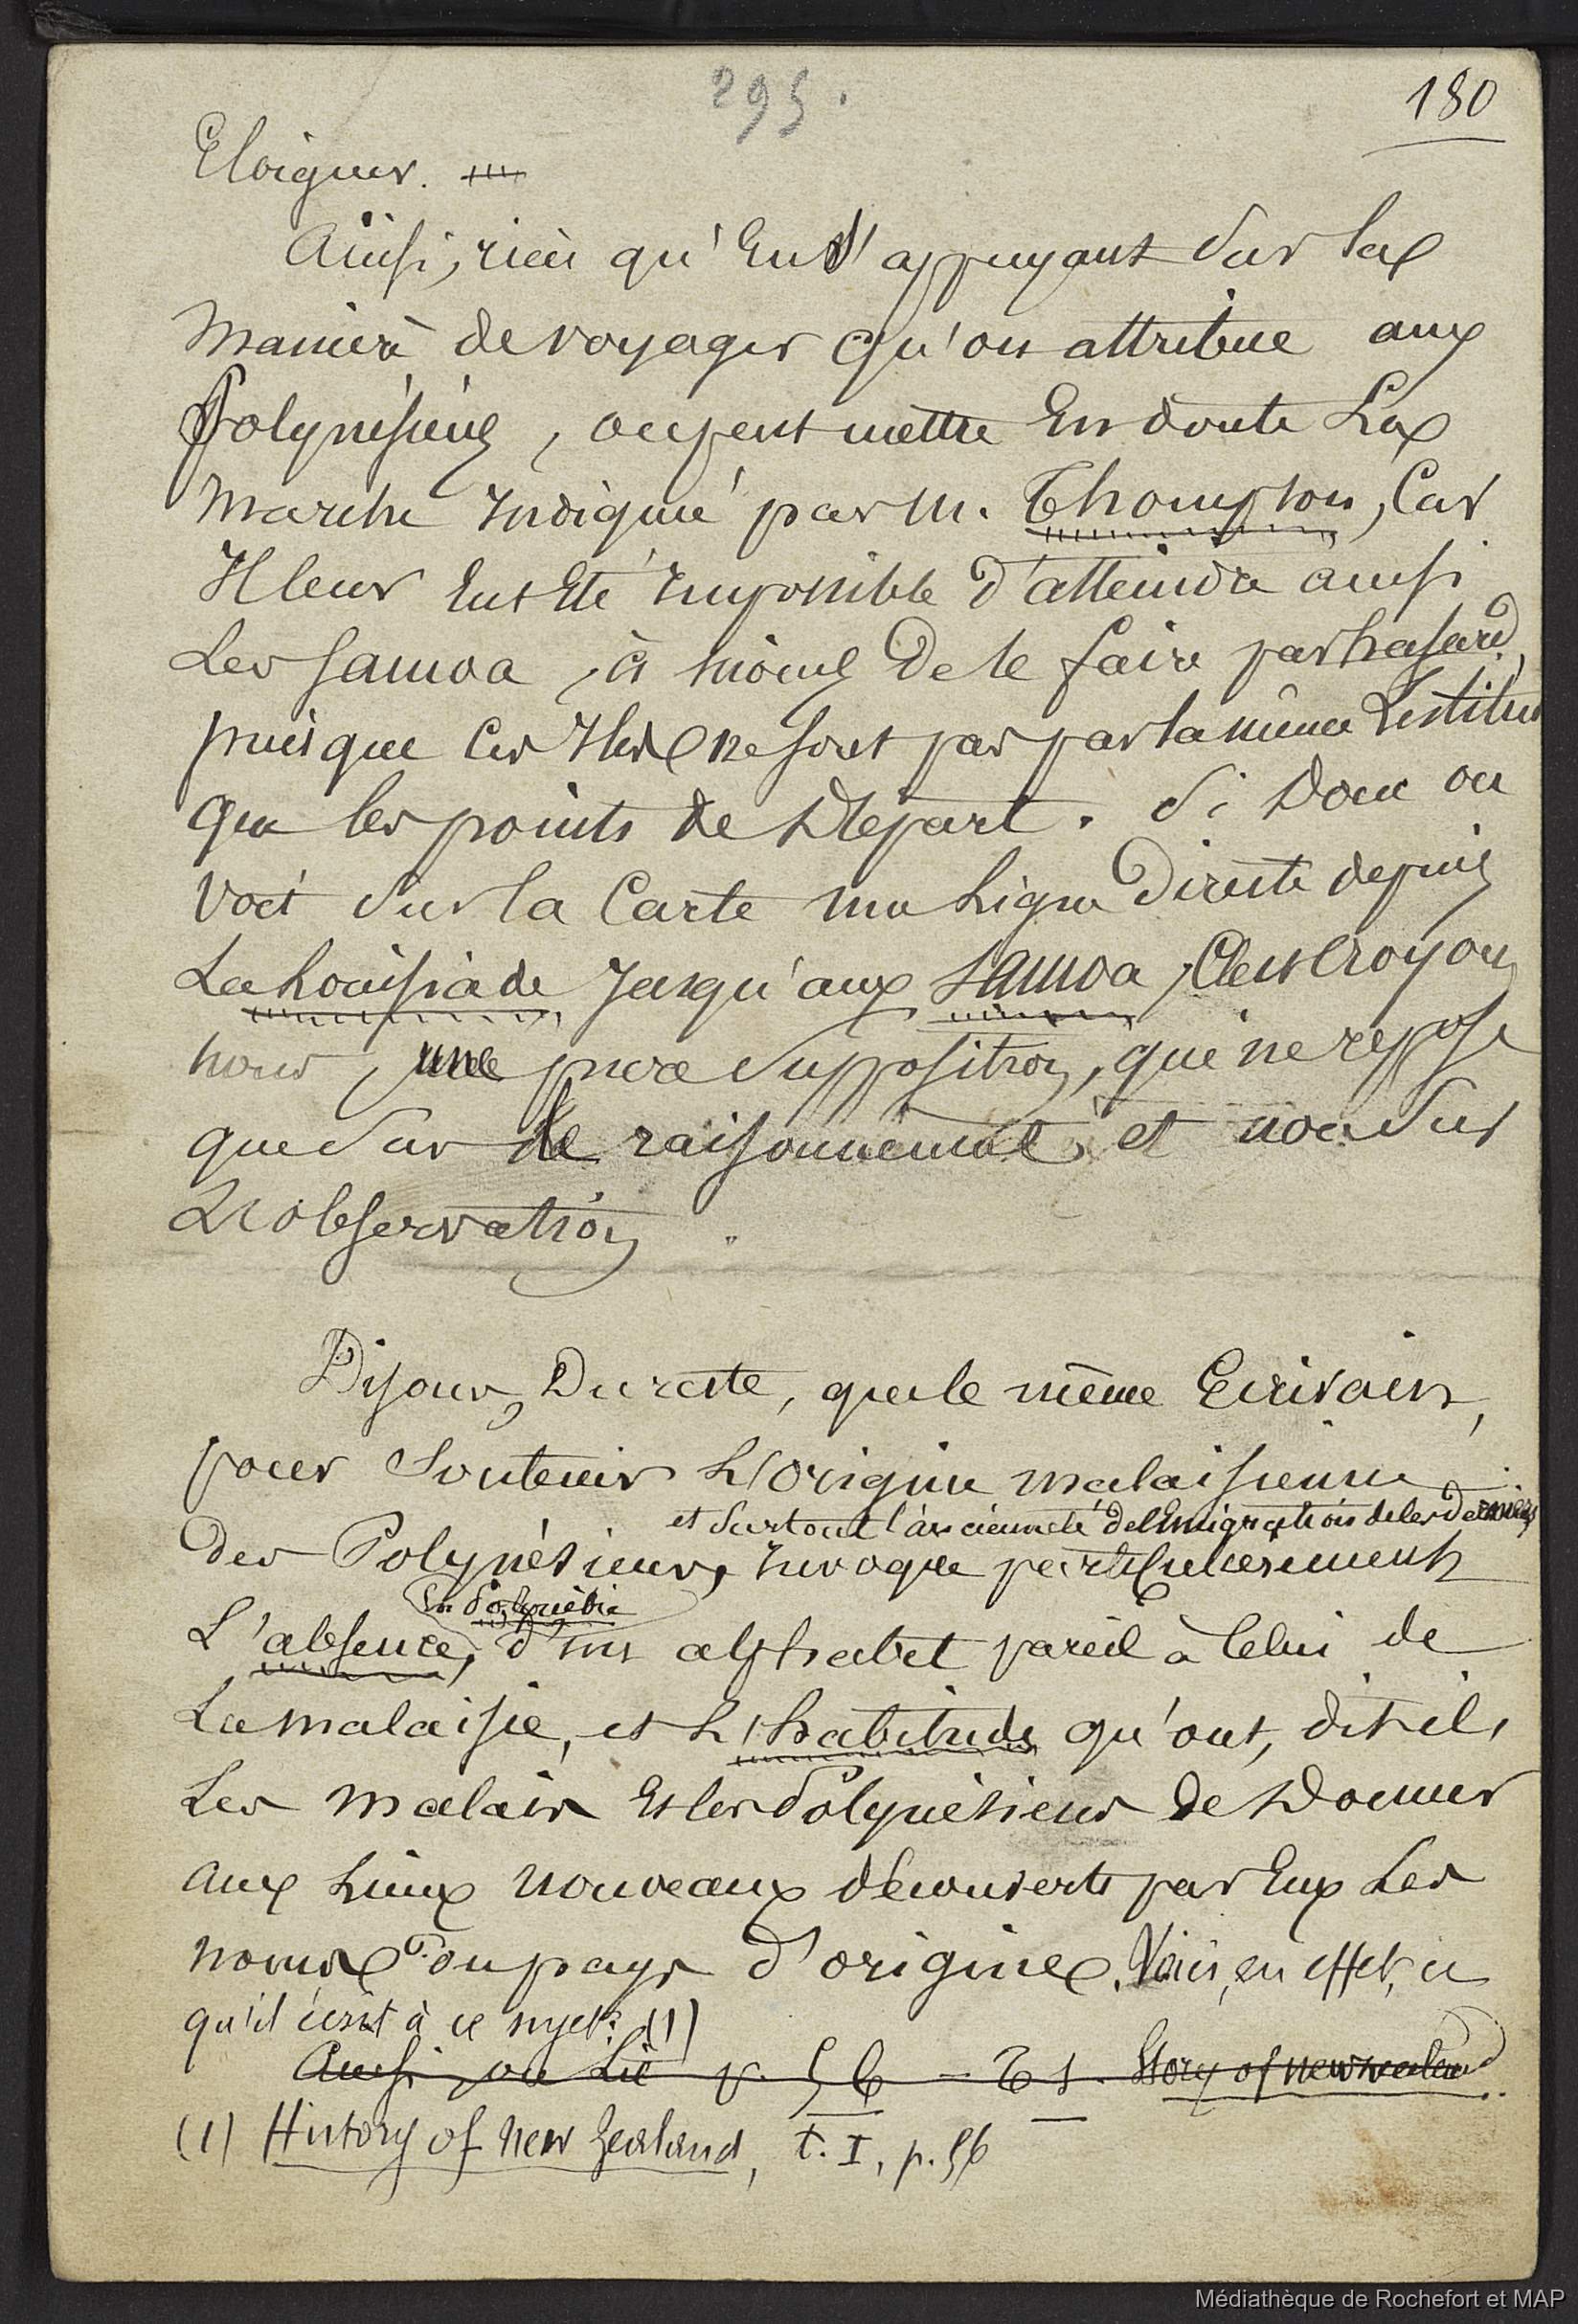 295.
180
Eloigner.
Ainsi, rien qu'en s'appuyant sur la
manière de voyager qu'on attribue aux
Polynésiens, on peut mettre en doute la
marche indiquée par M. Thompson, car
Il leur eut été impossible d'atteindre ainsi
les Samoa, à moins de le faire par hasard,
puisque ces Iles ne sont pas par la même Latitude
que les points de Départ. Si donc on
voit sur la Carte une ligne directe depuis
La Louisiade jusqu'aux Samoa, c'est croyons
nous, une pure supposition, qui ne repose
que sur le raisonnement et non sur
L'observation.
Disons, Du reste, que le même Ecrivain,
pour soutenir L'origine malaisienne
et surtout l'ancienneté de l'Emigration de ces derniers
Des Polynésiens, invoque particulièrement
En Polynésie
L'absence, d'un alphabet pareil à celui de
La malaisie, et L'habitude qu'ont, dit-il,
Les malais et les Polynésiens de Donner
aux Lieux nouveaux découverts par Eux Les
noms du pays d'origine. Voici, en effet, ce
qu'il écrit à ce sujet: (1)
Ainsi, on lit p. 56 - T 1. Story of new zealand.
(1) History of New Zealand, t. I, p. 56
Médiathèque de Rochefort et MAP